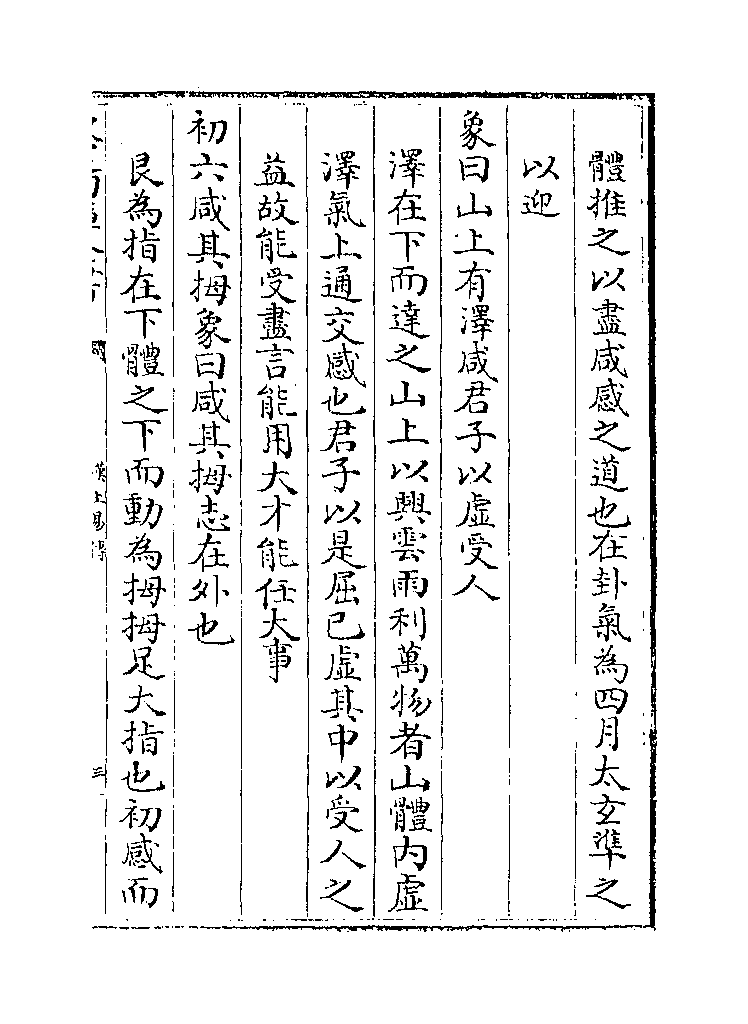 體推之以盡咸感之道也在卦氣為四月太玄準之
以迎
象曰山上有澤咸君子以虛受人
澤在下而達之山上以興雲雨利萬物者山體内虛
澤氣上通交感也君子以是屈已虛其中以受人之
益故能受盡言能用大才能任大事
初六咸其拇象曰咸其拇志在外也
艮為指在下體之下而動為拇拇足大指也初感而
漢上易傳
三